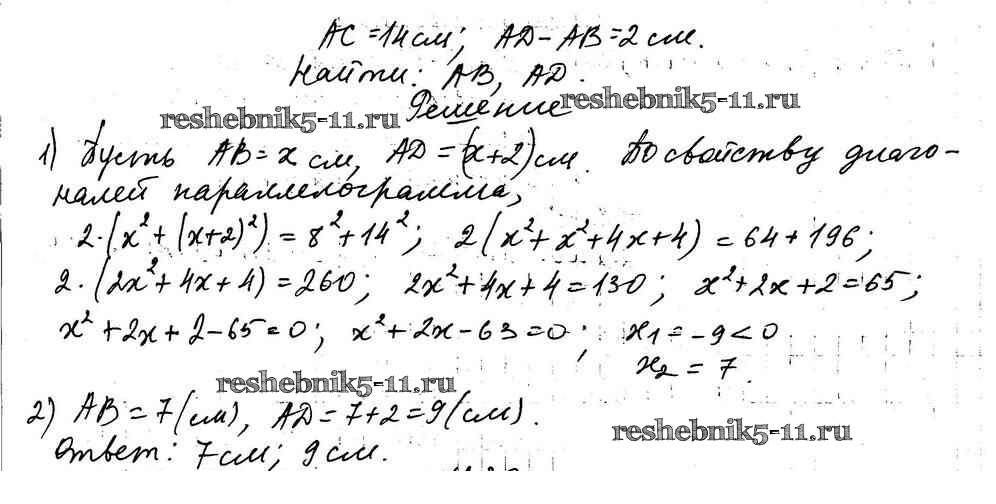 AC = 14 см; AD - AB = 2 см.
Найти: AB, AD.
Решение
reshebnik5-11.ru reshebnik5-11.ru
1) Пусть AB = x см, AD = (x+2) см. По свойству диаго-
налей параллелограмма,
2·(x²+(x+2)²) = 8²+14²; 2(x²+x²+4x+4) = 64+196;
2·(2x²+4x+4) = 260; 2x²+4x+4 = 130; x²+2x+2 = 65;
x²+2x+2-65 = 0; x²+2x-63 = 0; x₁ = -9 < 0
x₂ = 7
reshebnik5-11.ru
2) AB = 7 (см), AD = 7+2 = 9 (см).
reshebnik5-11.ru
Ответ: 7 см; 9 см.